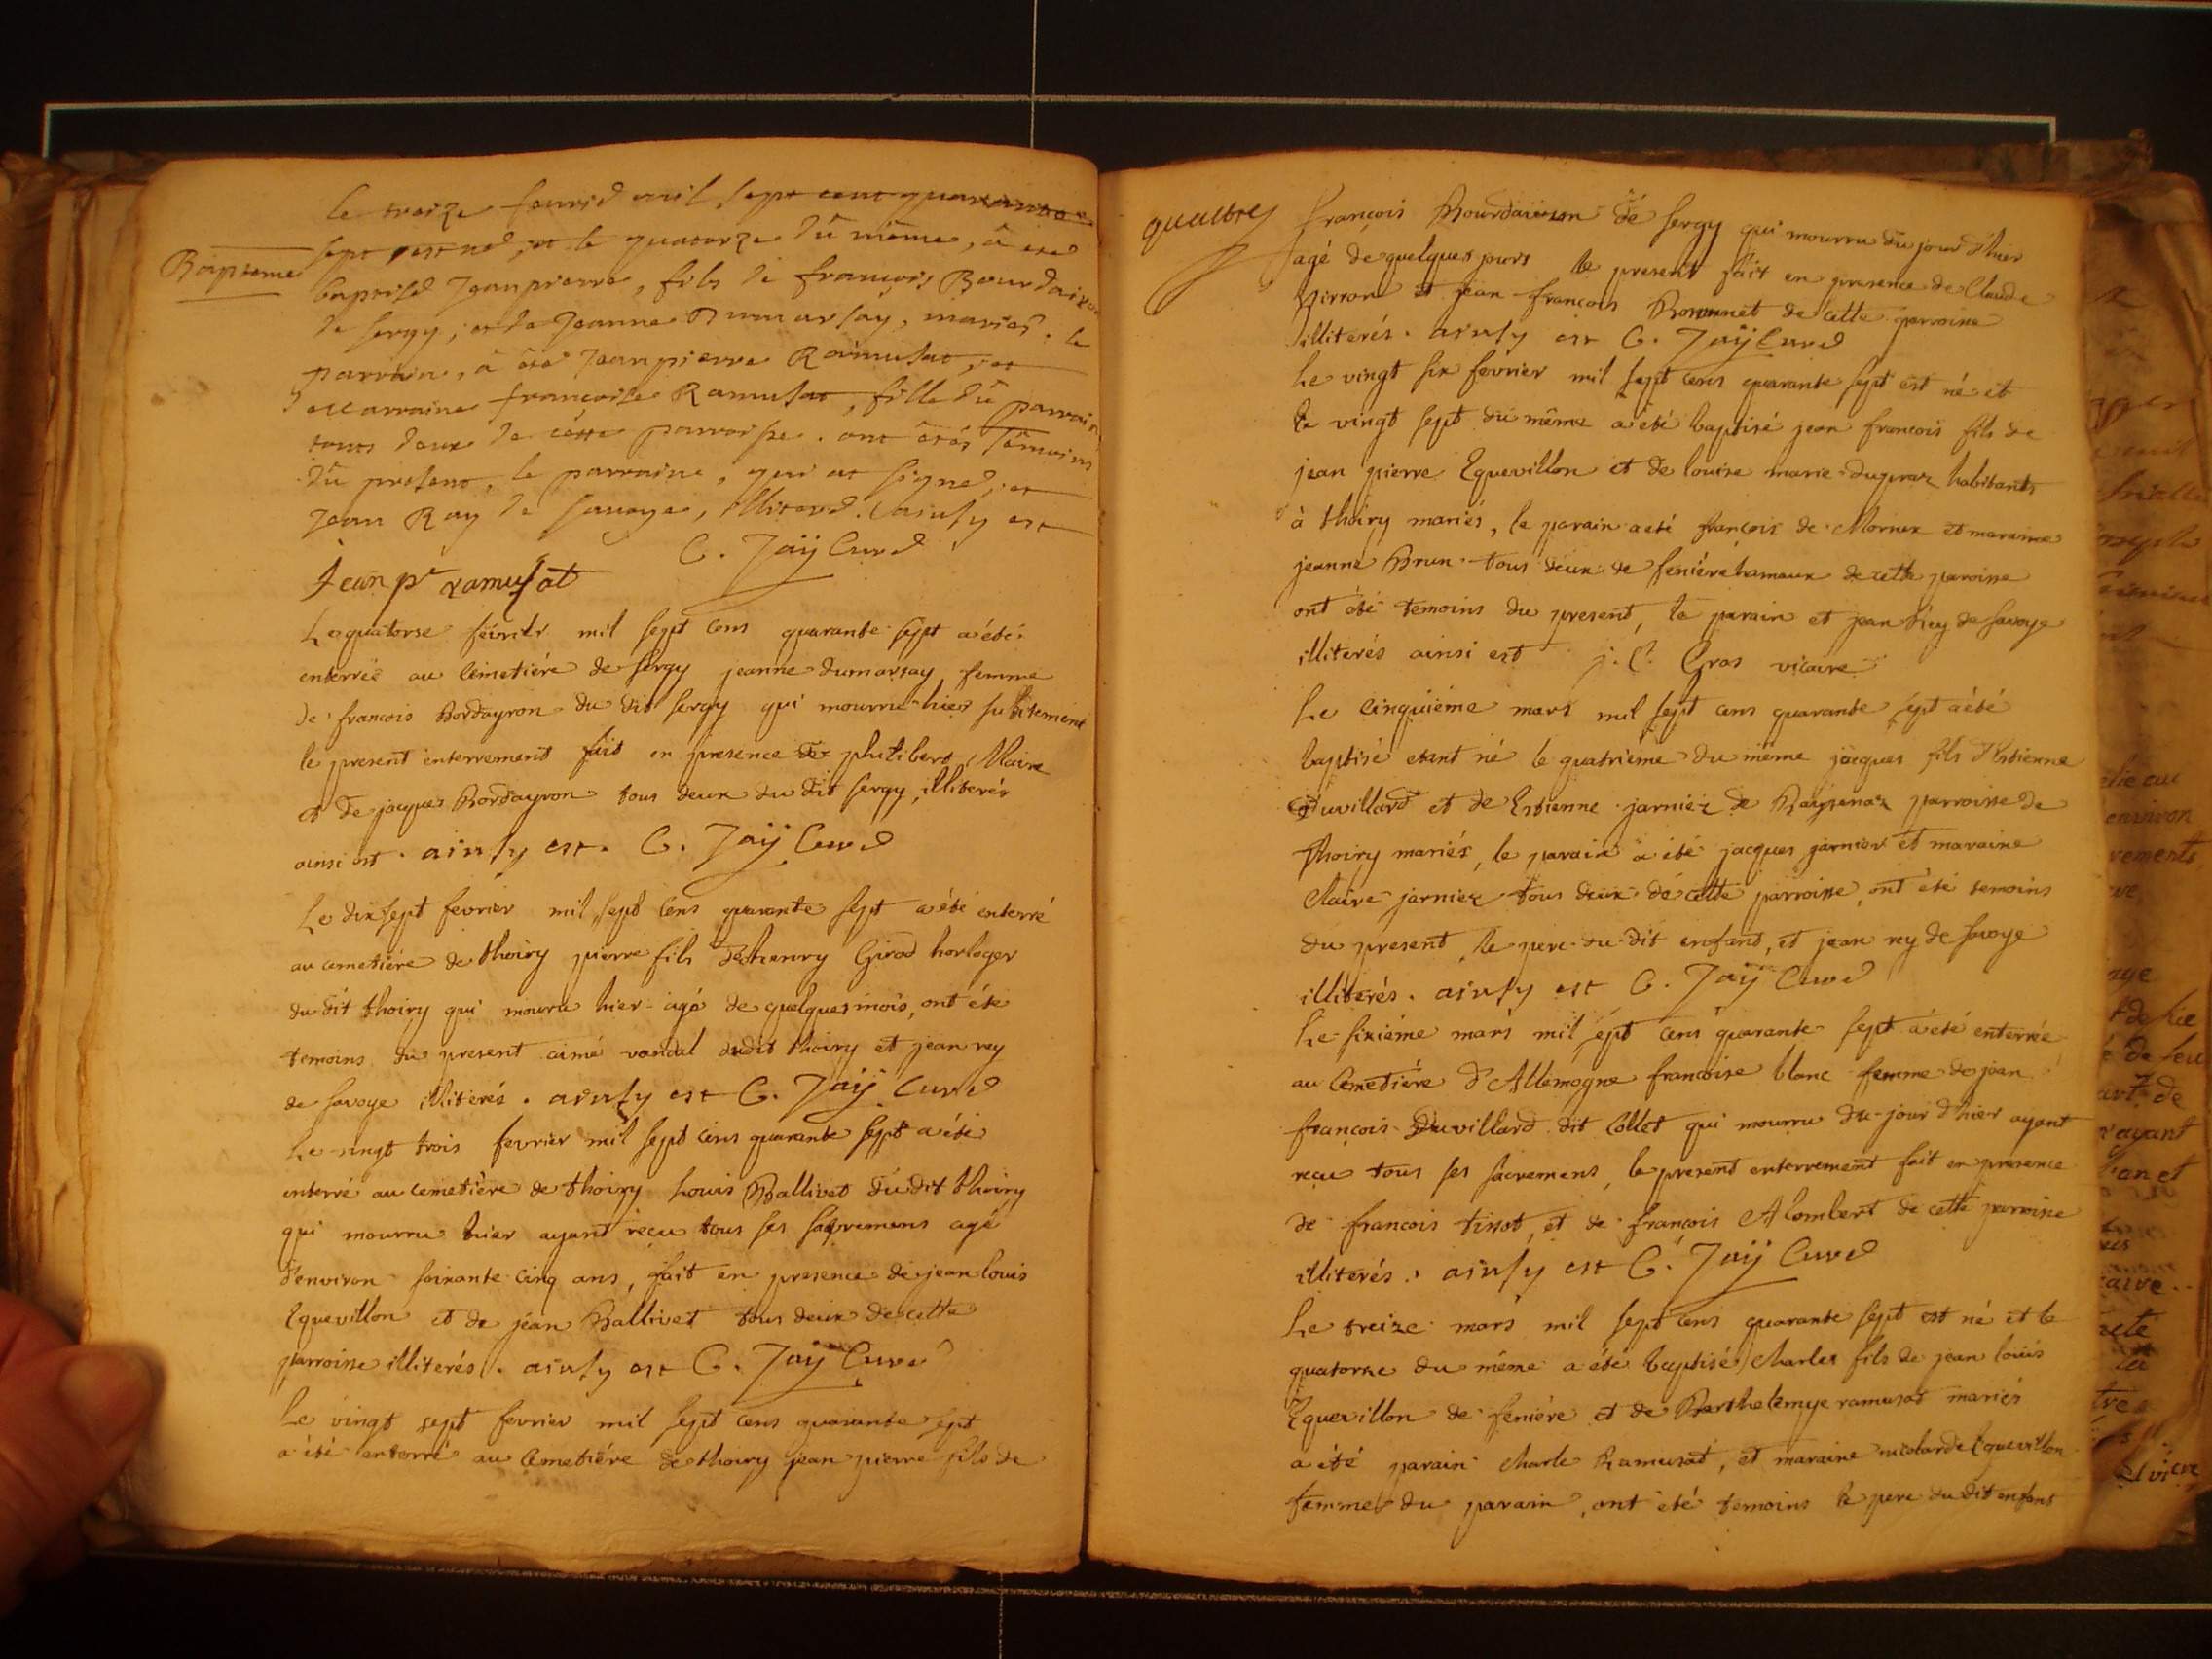 le treize fevrié mil sept cent quarante
sept est né, et le quatorze dû même, â eté
Bâpteme
baptisé Jean pierre, fils de françois Bourdairon
de sergy, et de Jeanne Dumarsay, mariés. le
parrain, â été Jean pierre Ramusat, et
marraine françoise Ramusat, fille dû parrain
touts deux de cette parroisse. ont êtés têmoins
dû present, le parraine, qui at signé, et
Jean Ray de savoye, illiteré. ainsy est
C. Jaÿ Curé
Jean pr ramusat
Le quatorse février mil sept cens quarante sept a été
enterrée au cimetiére de sergy jeanne dumarsay femme
de françois Bordayron du dit sergy qui mourru hier subitement
le present enterrement fait en presence de philibert Maire
et de jacques Bordayron tous deux du dit sergy illiterés
ainsi est. ainsy est. C. Jaÿ Curé
Le dix sept fevrier mil sept cens quarante sept a été enterré
au cemetiére de thoiry pierre fils de henry Girod horloger
du dit thoiry qui mouru hier agé de quelques mois, ont été
temoins du present aimé vandal dudit thoiry et jean rey
de savoye illiterés. ainsy est C. Jaÿ Curé
Le vingt trois fevrier mil sept cens quarante sept a été
enterré au cemetière de thoiry Louis Ballivet du dit thoiry
qui mourru hier ayant reçu tous ses sacremens agé
d'environ soixante cinq ans, fait en presence de jean louis
Equevillon et de jean Ballivet tous deux de cette
parroisse illiterés. ainsy est C. Jaÿ Curé
Le vingt sept fevrier mil sept cens quarante sept
a été enterré au cemetiére de thoiry jean pierre fils de
quattre
françois Bourdairon de sergy qui mourru du jour d'hier
agé de quelques jours le present fait en presence de Claude
et jean françois de cette parroisse
illiterés. ainsy est C. Jaÿ Curé
Le vingt six fevrier mil sept cens quarante sept est né et
le vingt sept du même a été baptisé jean francois fils de
jean pierre Equevillon et de louise marie dupraz habitants
à thoiry mariés, le parain a été françois de Mornex et maraine
jeanne Brun tous deux de feniére hamaux de cette paroisse
ont été temoins du present, le parain et jean Rey de savoye
illiterés ainsi est j. C. Gros vicaire
Le cinquiéme mars mil sept cens quarante sept a été
baptisé etant né le quatriéme du même jacques fils d'Estienne
Duvillard et de Estienne jarnier de parroisse de
Thoiry mariés, le parain a été jacques jarnier et maraine
Claire jarnier tous deux de cette parroisse, ont été temoins
du present, le pere du dit enfant, et jean rey de savoye
illiterés. ainsy est C. Jaÿ Curé
Le sixiéme mars mil sept cens quarante sept a été enterrée
au Cemetiére d'Allemogne francoise blanc femme de jean
françois Duvillard dit Collet qui mourru du jour d'hier ayant
reçu tous ses sacremens, le present enterrement fait en presence
de francois tissot, et de françois Alombert de cette parroisse
illiterés. ainsy est C. Jaÿ Curé
Le treize mars mil sept cens quarante sept est né et le
quatorze du même a été baptisé Charles fils de jean louis
Equevillon de feniére et de Barthelemye ramusat mariés
a été parain Charle Ramusat, et maraine nicolarde Equevillon
femme du parain, ont été temoins le pere du dit enfant